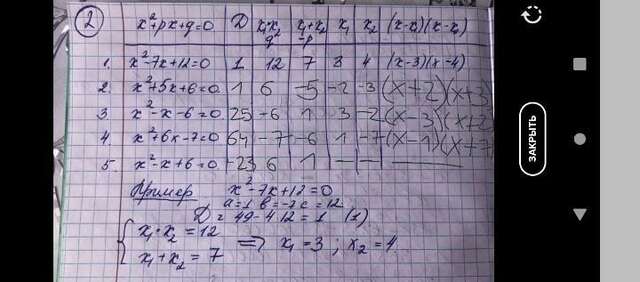 2 x²+px+q=0 D x₁·x₂ q x₁+x₂ -p x₁ x₂ (x-x₁)(x-x₂)
1. x²-7x+12=0 1 12 7 3 4 (x-3)(x-4)
2. x²+5x+6=0 1 6 -5 -2 -3 (x+2)(x+3)
3 x²-x-6=0 25 -6 1 3 -2 (x-3)(x+2
4. x²+6x-7=0 64 -7 -6 1 -7 (x-1)(x+7
5. x²-x+6=0 -23 6 1 — — —
Пример x²-7x+12=0
a=1 b=-7 c=12
D = 49-4·12=1 (1)
{ x₁·x₂ = 12
x₁+x₂ = 7 => x₁=3; x₂=4
ЗАКРЫТЬ